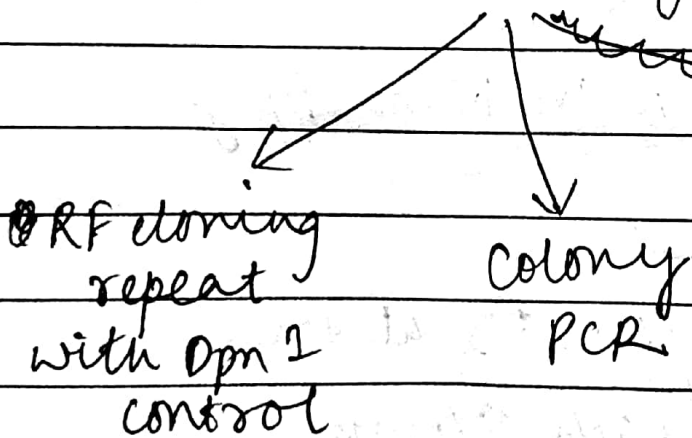 RF cloning
repeat
with Dpn 1
control
Colony
PCR